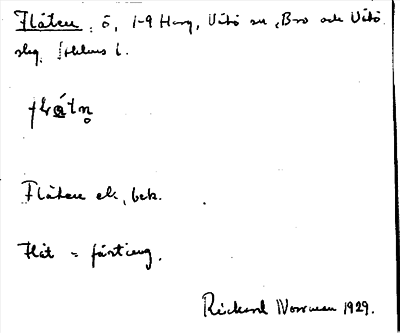 Flåten, ö, 1-9 Harg, Vätö sn, Bro och Vätö
skg, Sthlms l.
Flåten el., bek.
Flåt = färting.
Rickard Norrman 1929.